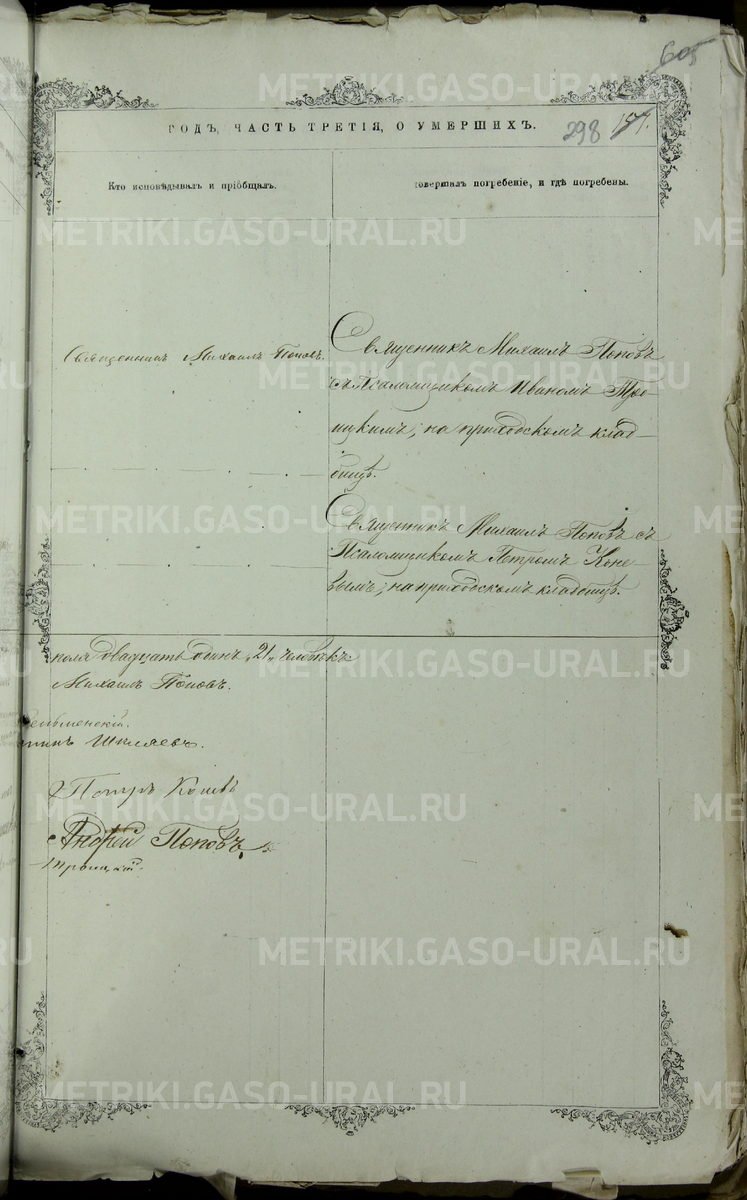 605
ГОДЪ, ЧАСТЬ ТРЕТІЯ, О УМЕРШИХЪ.
298 157.
Кто исповѣдывалъ и пріобщалъ.
совершалъ погребеніе, и гдѣ погребены.
Священникъ Михаилъ Поповъ.
Священникъ Михаилъ Поповъ
съ Псаломщикомъ Иваномъ Тро-
ицкимъ; на приходскомъ клад-
бищѣ.
Священникъ Михаилъ Поповъ съ
Псаломщикомъ Петромъ Коне-
вымъ; на приходскомъ кладбищѣ.
пола двадцать одинъ „21„ человѣкъ
Михаилъ Поповъ.
Шкляевъ.
Петръ Коневъ
Андрей Поповъ
Троицкій.
METRIKI.GASO-URAL.RU